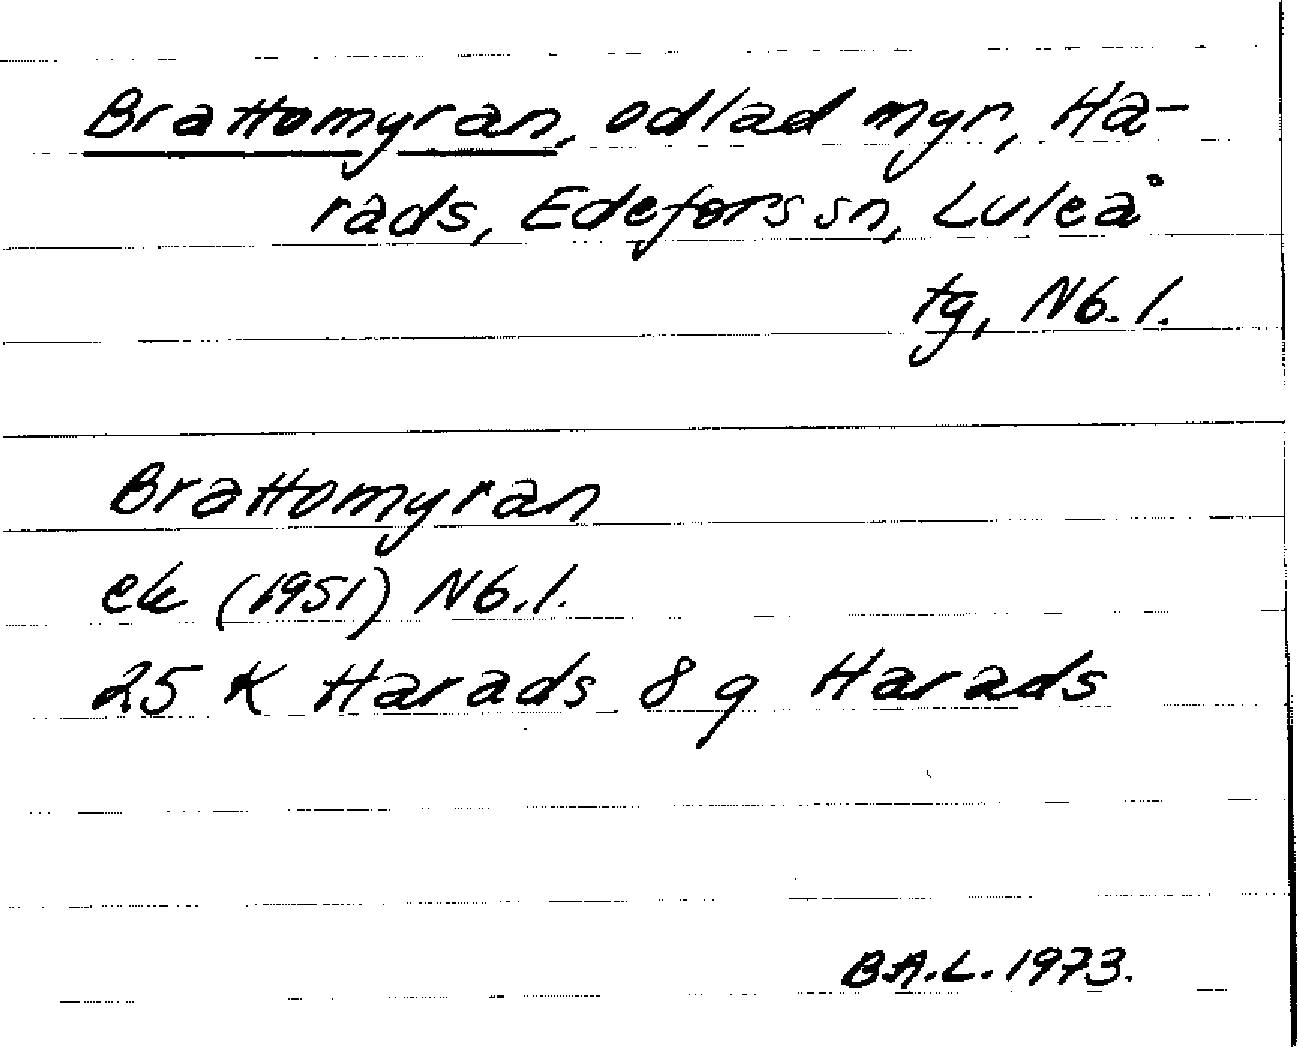 Brattomyran, odlad myr, Ha-
rads, Edefors sn, Luleå
tg, Nb. l.
Brattomyran
ek (1951) Nb. l.
25 K Harads 8 g Harads
B.A.L. 1973.